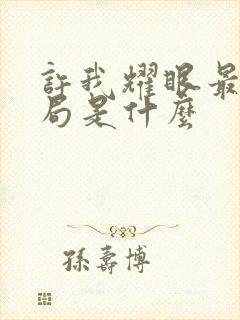 許我耀眼最
局是什麼
孫壽博